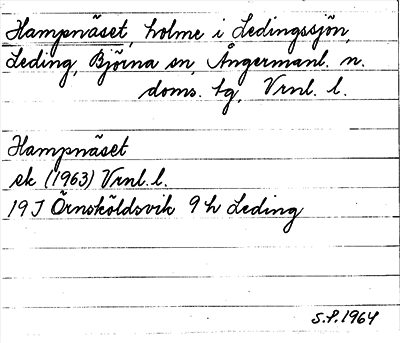 Hampnäset, holme i Ledingssjön,
Leding, Björna sn, Ångermanl. n.
doms. tg, Vrnl. l.
Hampnäset
ek (1963) Vrnl. l.
19 J Örnsköldsvik 9 h Leding
S.P. 1964